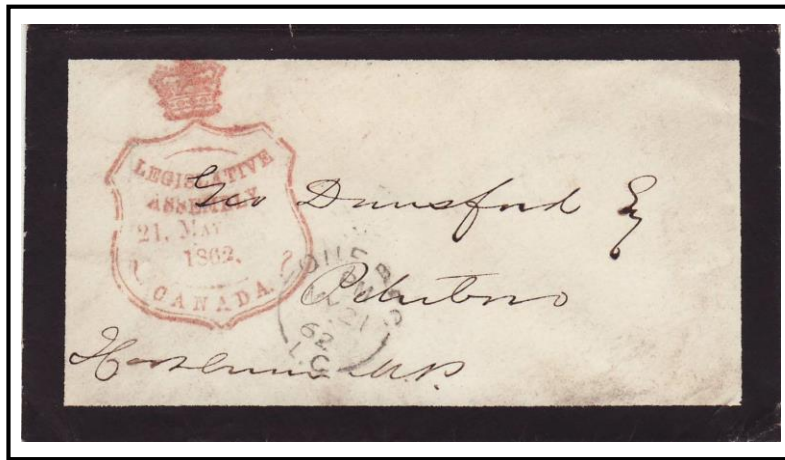 LEGISLATIVE
ASSEMBLY
21. MAY
1862.
CANADA
Geo Dunsford Eq
Peterboro
QUEBEC
21
62
L.C.
M.P.